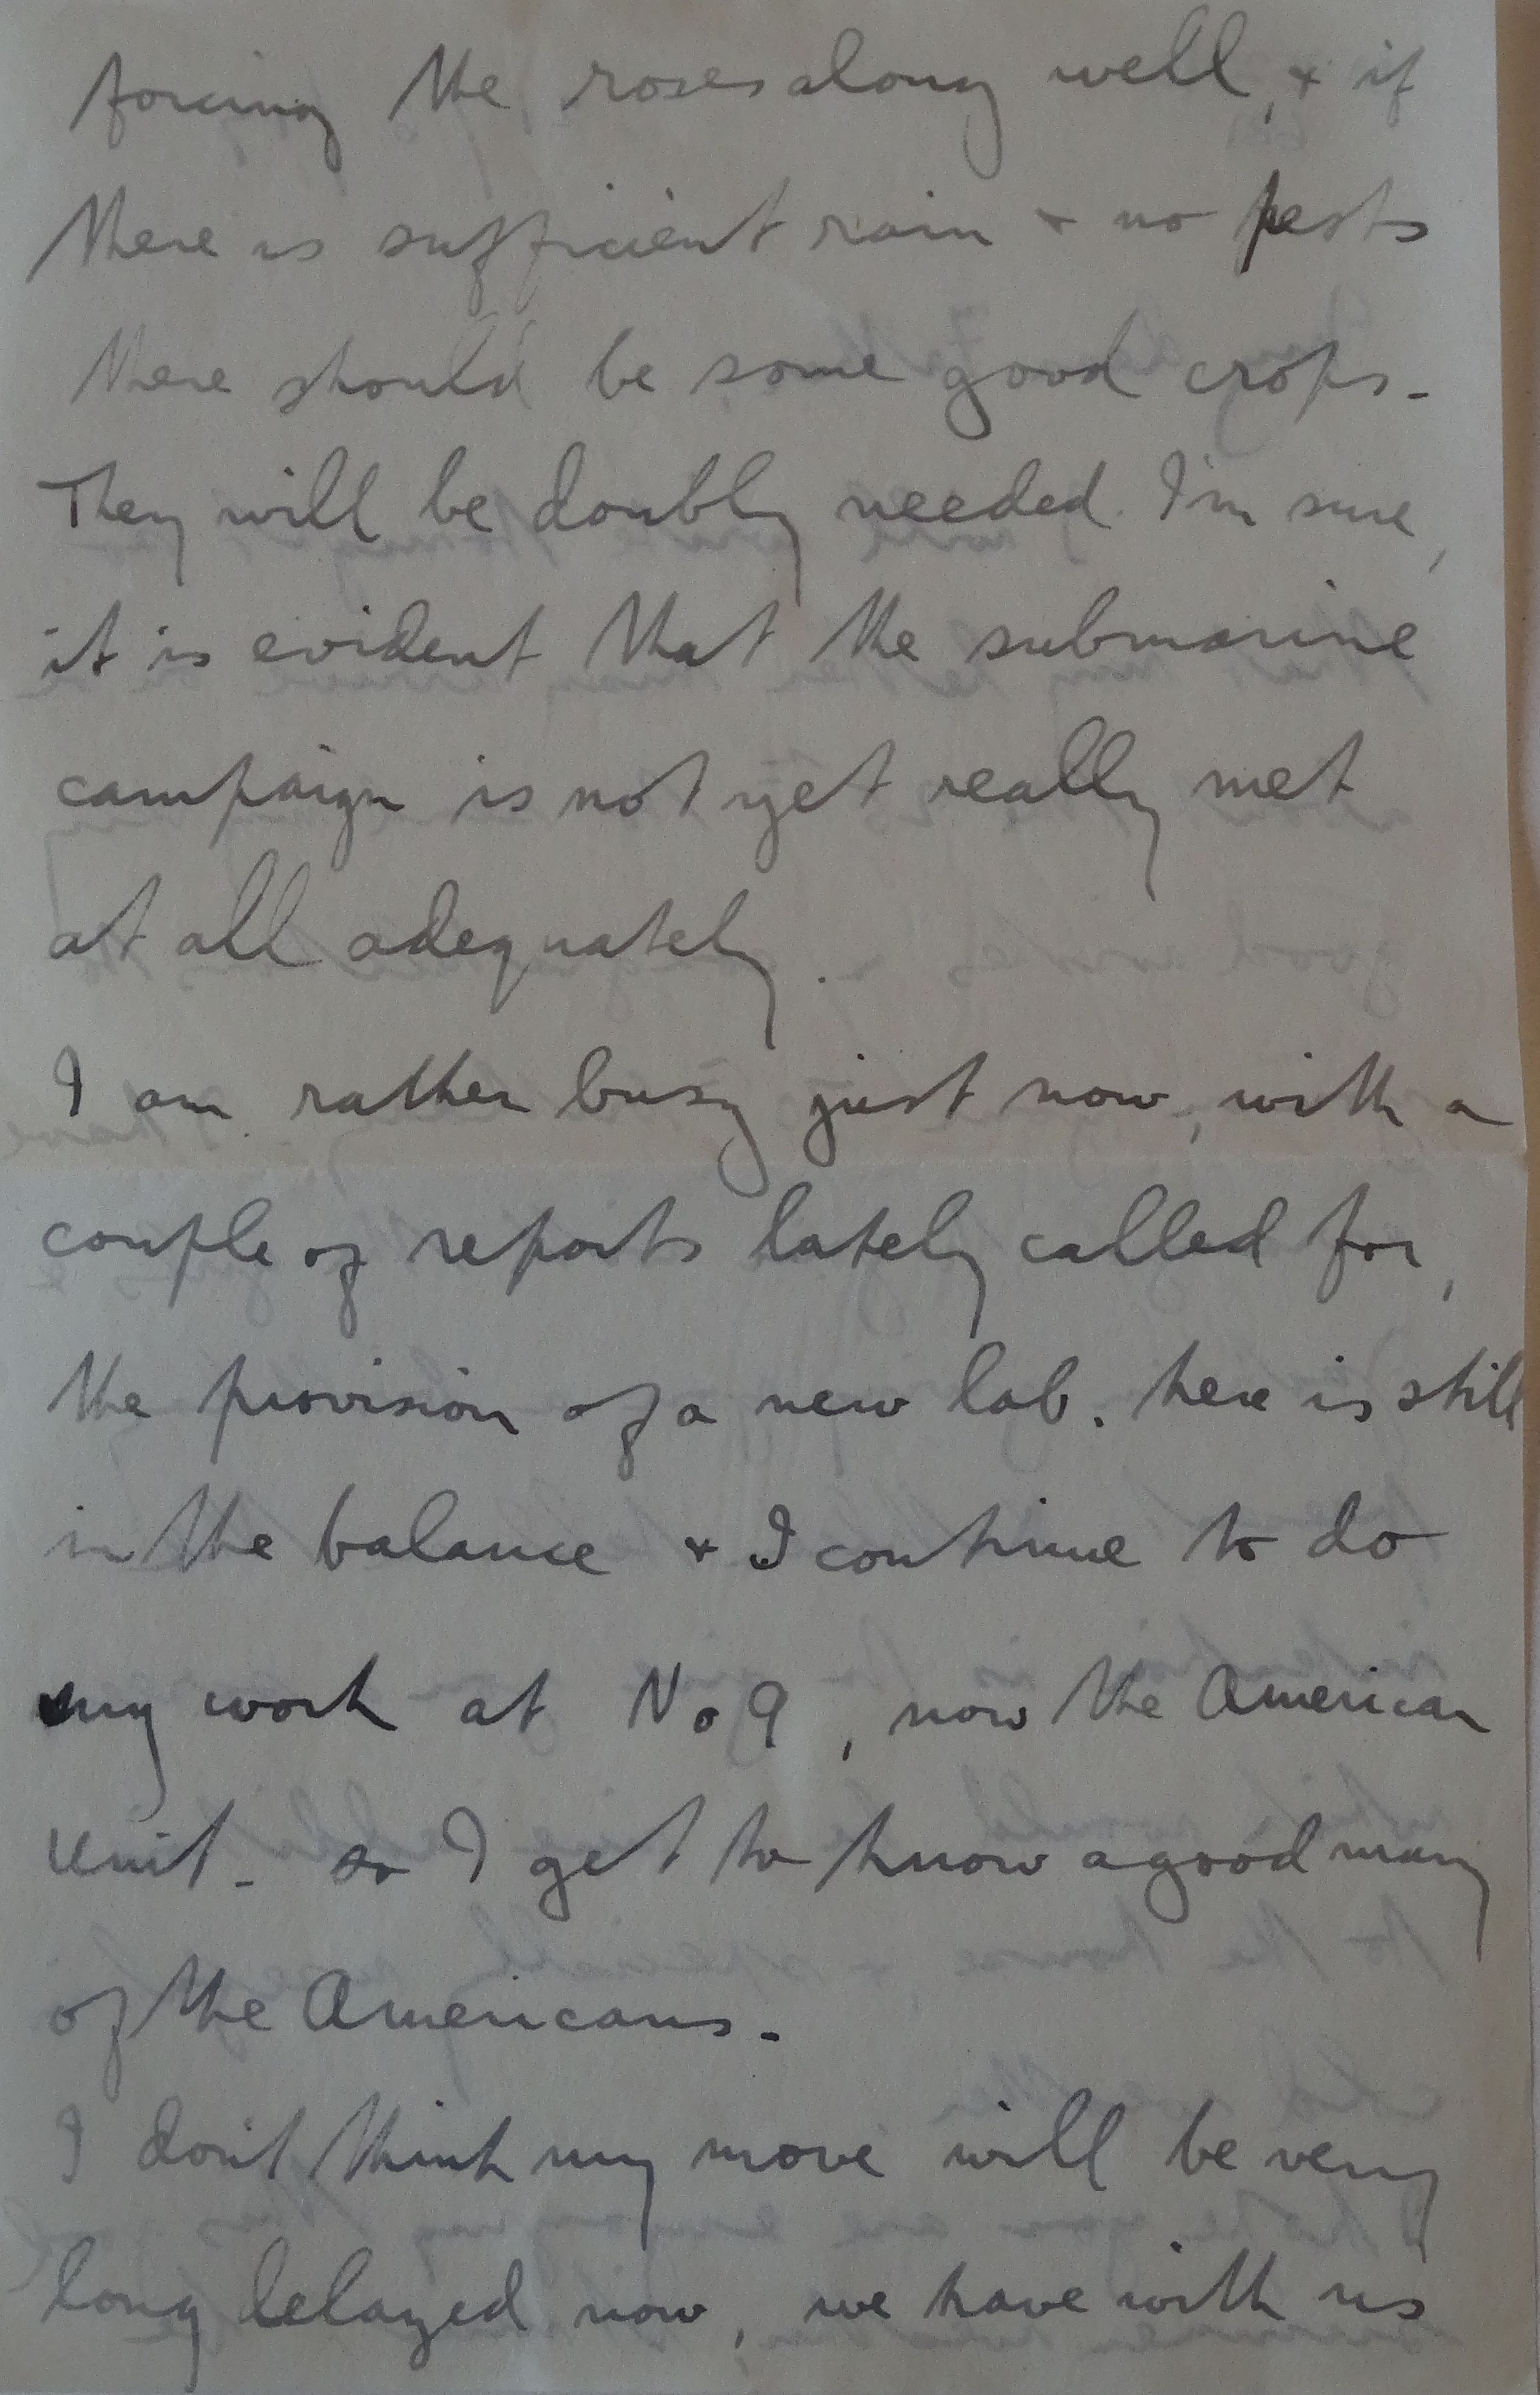 forcing the roses along well, + if
there is sufficient rain + no pests
there should be some good crops -
They will be doubly needed I'm sure,
it is evident that the submarine
campaign is not yet really met
at all adequately.
I am rather busy just now, with a
couple of reports lately called for,
the provision of a new lab. here is still
in the balance + I continue to do
my work at No 9, now the American
Unit - so I get to know a good many
of the Americans -
I don't think my move will be very
long delayed now, we have with us